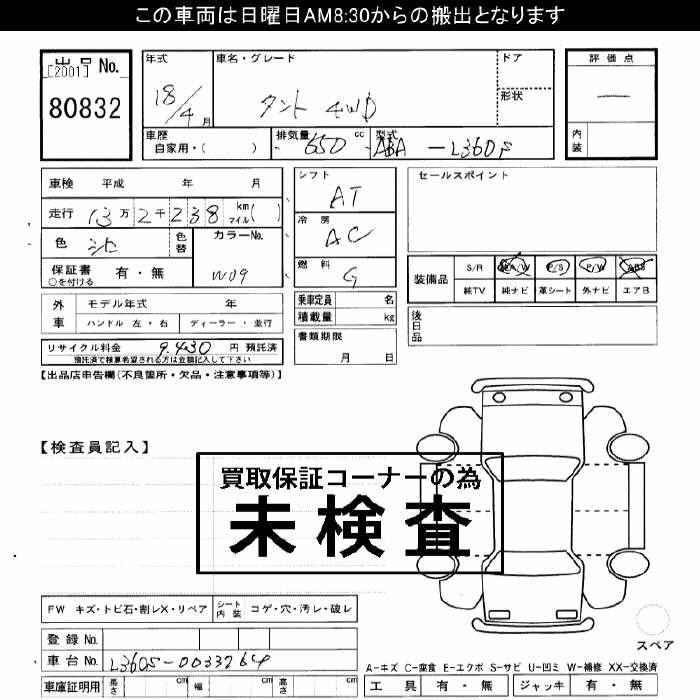 この車両は日曜日AM8:30からの搬出となります
出品 No.
[2001]
80832
年式
18/4 月
車名・グレード
タント 4WD
ドア
形状
評価点
一
内装
車歴
自家用・( )
排気量 cc
650
型式
ABA-L360S
車検 平成 年 月
走行 13万2千238 km マイル( )
色 シロ
色替
カラーNo.
W09
保証書 有・無
○を付ける
シフト
AT
冷房
AC
燃料
G
セールスポイント
装備品
S/R AA/W P/S P/W ABS
純TV 純ナビ 革シート 外ナビ エアB
外車
モデル年式 年
ハンドル 左・右 ディーラー・並行
乗車定員 名
積載量 kg
後日品
リサイクル料金 9,430 円 預託済
預託済で積算希望される方は金額記入して下さい
書類期限
月 日
【出品店申告欄(不良箇所・欠品・注意事項等)】
【検査員記入】
買取保証コーナーの為
未検査
FW キズ・トビ石・割レX・リペア
シート内装 コゲ・穴・汚レ・破レ
登録No.
車台No. L360S-0033264
スペア
A-キズ C-腐食 E-エクボ S-サビ U-凹ミ W-補修 XX-交換済
車庫証明用 長さ cm 幅 cm 高さ cm
工具 有・無 ジャッキ 有・無